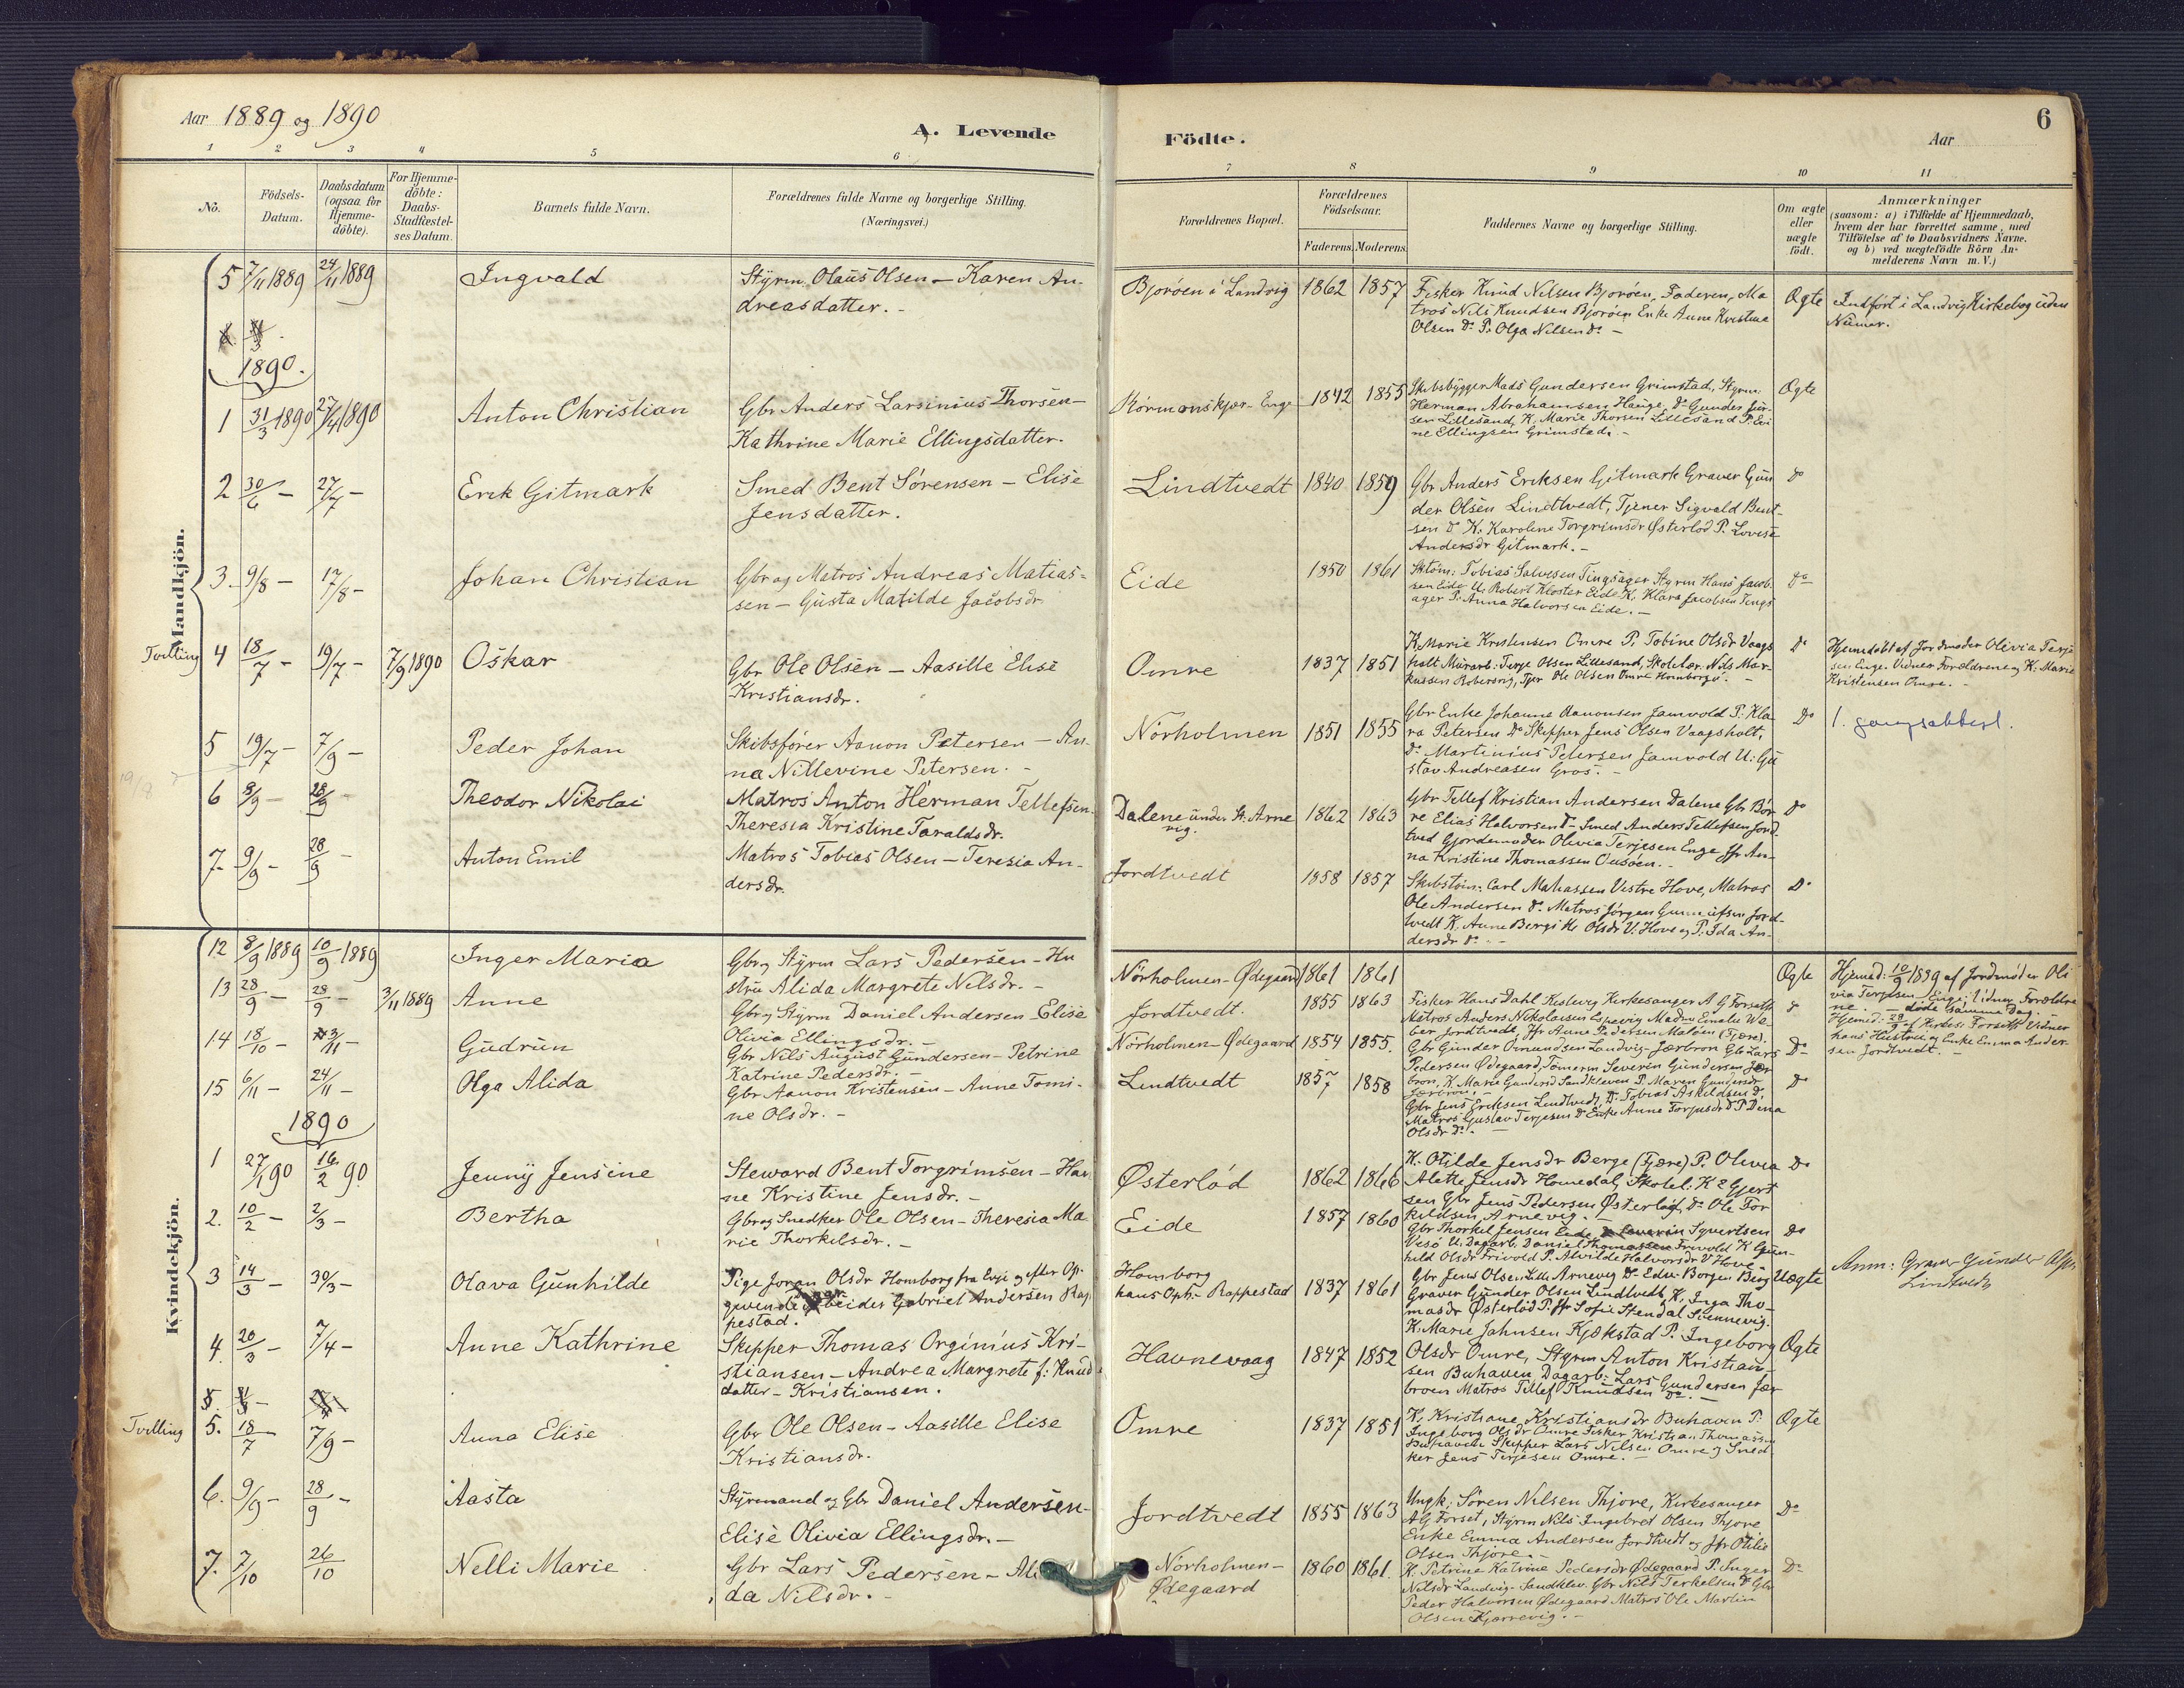 Aar 1889 og 1890
A. Levende
Födte.
Aar
6
1 2 3 4 5 6 7 8 9 10 11
No.
Födsels-
Datum.
Daabsdatum
(ogsaa for
Hjemme-
döbte).
For Hjemme-
döbte:
Daabs-
Stadfæstel-
ses Datum.
Barnets fulde Navn.
Forældrenes fulde Navne og borgerlige Stilling.
(Næringsvei.)
Forældrenes Bopæl.
Forældrenes
Födselsaar.
Faderens. Moderens.
Faddernes Navne og borgerlige Stilling.
Om ægte
eller
uægte
födt.
Anmærkninger
(saasom: a) i Tilfælde af Hjemmedaab,
hvem der har forrettet samme, med
Tilföielse af to Daabsvidners Navne.
og b) ved uægtefödte Börn An-
melderens Navn m. V.)
Mandkjön.
5 7/11 1889 24/11 1889 Ingvald
Styrm. Olaus Olsen - Karen An-
dreasdatter. -
Bjoröen i Landvig 1862 1857
Fisker Knud Nilsen Bjoröen, Faderen, Ma
tros Nils Knudsen Bjoröen Enke Anne Kristine
Olsen Do P. Olga Nilsen Do -
Ægte
Indfört i Landvig Kirkebog uden
Numer.
1890.
1 31/3 1890 27/4 1890 Anton Christian
Gbr Anders Larsinius Thorsen-
Kathrine Marie Ellingsdatter.
1842 1855
Skibsbygger Mads Gundersen Grimstad, Styrm.
Herman Abrahamsen Hauge, Do Gunder
sen Lillesand, K. Marie Thorsen Lillesand P.
ne Ellingsen Grimstad. -
Ægte
2 30/6 - 27/7 - Erik Gitmark
Smed Bent Sörensen - Elise
Jensdatter.
Lindtvedt 1840 1859
Gbr Anders Eriksen Gitmark Graver Gun
der Olsen Lindtvedt, Tjener Sigvald Bent-
sen Do K. Karoline Torgrimsdr Østerlod P. Lovise
Andersdr Gitmark. -
Do
3. 9/8 - 17/8 - Johan Christian
Gbr og Matros Andreas Matias-
sen - Gusta Matilde Jacobsdr
Eide 1850 1861
Sktöm: Tobias Salvesen Tingsager Styrm Hans Jacob
sen Eide U. Robert Kloster Eide K. Klara Jacobsen Tings
ager P. Anna Halvorsen Eide. -
Do
Tvilling 4 18/7 - 19/7 - 7/9 1890 Oskar
Gbr Ole Olsen - Aasille Elise
Kristiansdr.
Omre 1837 1851
K. Marie Kristensen Omre P. Tobine Olsdr Vaags
holt Murarb: Terje Olsen Lillesand, Skolelær. Nils Mar-
kussen Robersvig, Ole Olsen Omre Homborgs. -
Do
Hjemdöbt af Jordmoder Olivia Terje
sen Enge. Vidner Forældrene og K. Marie
Kristensen Omre. -
5 19/7 - 7/9 - Peder Johan
Skibsförer Aanon Petersen - An-
na Nillevine Petersen. -
Nörholmen 1851 1855
Gbr Enke Johanne Aanonsen Jamvold P. Kla
ra Petersen Do Skipper Jens Olsen Vaagsholt,
Do Martinius Petersen Jamvold U. Gu
stav Andreasen Gros. -
Do
19/8 ?
6 8/9 - 28/9 - Theodor Nikolai
Matros Anton Herman Tellefsen
Theresia Kristine Taraldsdr.
Dalene under St. Arne
vig. 1862 1863
Gbr Tellef Kristian Andersen Dalene Gbr Bör
re Elias Halvorsen Do - Smed Anders Tellefsen Jord-
tved Gjordemoder Olivia Terjesen Enge Jfr An-
na Kristine Thomassen Ousöen. -
Do
7. 9/9 - 28/9 - Anton Emil
Matros Tobias Olsen - Teresia An-
dersdr.
Jordtvedt 1858 1857
Skibstöm: Carl Mathiassen Vestre Hove, Matros
Ole Andersen Do Matros Jörgen Gunnufsen Jord-
tvedt K. Anne Olsdr V. Hove og P. Ida An-
dersdr Do -
Do
Kvindekjön.
12 8/9 1889 10/9 1889 Inger Maria
Gbr og Styrm Lars Pedersen - Hu
stru Alida Margrete Nilsdr. -
Nörholmen - Ødegaard 1861 1861
Ægte
Hjemd: 10/9 1889 af Jordmoder Oli
via Terjesen Enge: Vidner Forældre
ne - döde samme Dag. -
13 28/9 - 28/9 - 3/11 1889 Anne
Gbr og Styrm Daniel Andersen - Elise
Olivia Ellingsdr. -
Jordtvedt. 1855 1863
Fisker Hans Dahl Keslevig Kirkesanger A G Forseth
Matros Anders Nikolaisen Madm Emelie We-
ber Jordtvedt, Jfr Anne Pedersen Malöen (Fjære)
Do
Hjemd: 28/9 af Kirkes: Forseth Vidner
hans Hustru og Enke Emma Ander-
sen Jordtvedt. -
14 18/10 - 3/11 - Gudrun
Gbr Nils August Gundersen - Petrine
Katrine Pedersdr. -
Nörholmen - Ødegaard 1854 1855.
Gbr Gunder Omundsen Landvig - Jærbron Gbr Lars
Pedersen Ødegaard, Tömerm Severin Gundersen Jær
bron, K. Marie Gundersdr Sandkleven P. Maren Gundersdr
Jærbron. -
Do
15 6/11 - 24/11 - Olga Alida
Gbr Aanon Kristensen - Anne Tomi-
ne Olsdr. -
Lindtvedt 1857 1858
Gbr Jens Eriksen Lindtvedt, Do Tobias Askildsen Do
Matros Gustav Terjesen Do Enke Anne Torjusdr Do P. Dena
Olsdr Do -
Do
1890
1 27/1 90 16/2 90 Jenny Jensine
Steward Bent Torgrimsen - Han
ne Kristine Jensdr. -
Østerlöd 1862 1866
K. Otilde Jensdr Berge (Fjære) P. Olivia
Alette Jensdr Homedal, Skolel. K E Gjert
sen Gbr Jens Pedersen Østerlöd, Do Ole Tor
kildsen Arnevig. -
Do
2. 10/2 - 2/3 - Bertha
Gbr og Snedker Ole Olsen - Theresia Ma
rie Thorkilsdr. -
Eide 1857 1860
Gbr Thorkil Jensen Eide Syvertsen
Vesö U. Dagarb. Daniel Thomassen Frivold K Gun-
hild Olsdr Frivold P. Alvilde Halvorsdr V Hove -
Do
3 14/3 - 30/3 - Olava Gunhilde
Pige Joran Olsdr Homborg fra Evje og efter Op-
givende Arbeider Gabriel Andersen Rap
pestad.
Homborg
hans Oph. - Rappestad 1837 1861
Gbr Jens Olsen Lille Arnevig Do Edv. Borgen Berg
Graver Gunder Olsen Lindtvedt K. Inga Tho-
masdr Østerlöd P. Jfr Sofie Stendal Svennevig.
Uægte
Anm: Graver Gunder Olsen
Lindtvedt
4. 20/3 - 7/4 - Anne Kathrine
Skipper Thomas Orginius Kri-
stiansen - Andrea Margrete f: Knuds
datter - Kristiansen.
Havnevaag 1847 1852
K. Marie Jahnsen Kjøkstad P. Ingeborg
Olsdr Omre, Styrm Anton Kristian-
sen Buhaven Dagarb: Lars Gundersen Jær
broen Matros Tellef Knudsen Do -
Ægte
Tvilling 5. 18/7 - 7/9 - Anna Elise
Gbr Ole Olsen - Aasille Elise
Kristiansdr.
Omre 1837 1851
K. Kristiane Kristiansdr Buhaven P.
Ingeborg Olsdr Omre Fisker Kristian Thomassen
Buhaven Skipper Lars Nilsen Omre og Sned
ker Jens Terjesen Omre. -
Ægte
6. 9/9 - 28/9 - Aasta
Styrmand og Gbr Daniel Andersen-
Elise Olivia Ellingsdr. -
Jordtvedt 1855 1863
Ungk: Sören Nilsen Thjore, Kirkesanger
AG Forset, Styrm Nils Ingebret Olsen Thjore
Enke Emma Andersen Jordtvedt og Jfr Otilie
Olsen Thjore. -
Do
7. 7/10 26/10 Nelli Marie
Gbr Lars Pedersen - Ali
da Nilsdr. -
Nörholmen -
Ødegaard 1860 1861.
K. Petrine Katrine Pedersdr Ødegaard P. Inger
Nilsdr Landvig - Sandklev. Gbr Nils Terkelsen Do Gbr
Peder Halvorsen Ødegaard Matros Ole Martin
Olsen Kjorrevig. -
Do